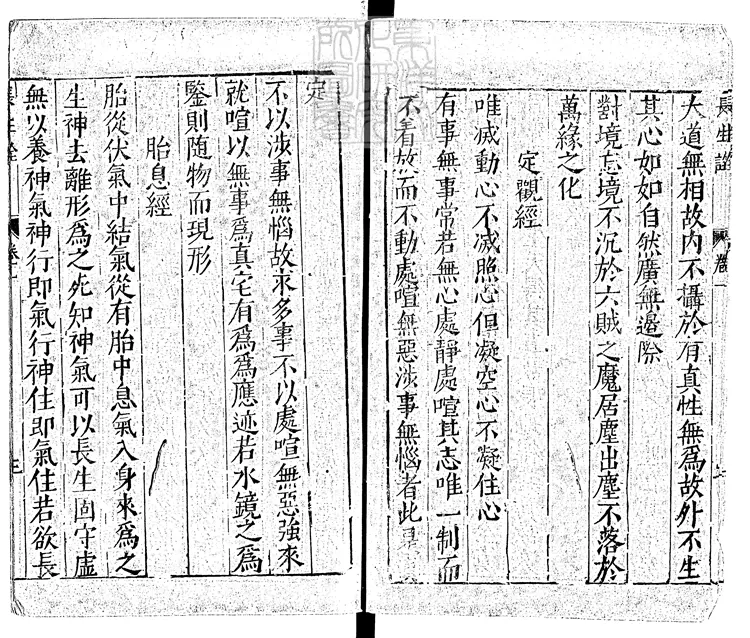 長生詮 卷一
大道無相故内不攝於有真性無爲故外不生
其心如如自然廣無邊際
對境忘境不沉於六賊之魔居塵出塵不落於
萬緣之化
定觀經
唯滅動心不滅照心但凝空心不凝住心
有事無事常若無心處靜處喧其志唯一制而
不着放而不動處喧無惡涉事無惱者此是
定
不以涉事無惱故求多事不以處喧無惡強來
就喧以無事爲真宅有爲爲應迹若水鏡之爲
鑒則随物而現形
胎息經
胎從伏氣中結氣從有胎中息氣入身來爲之
生神去離形爲之死知神氣可以長生固守虛
無以養神氣神行即氣行神住即氣住若欲長
長生詮 卷一 三